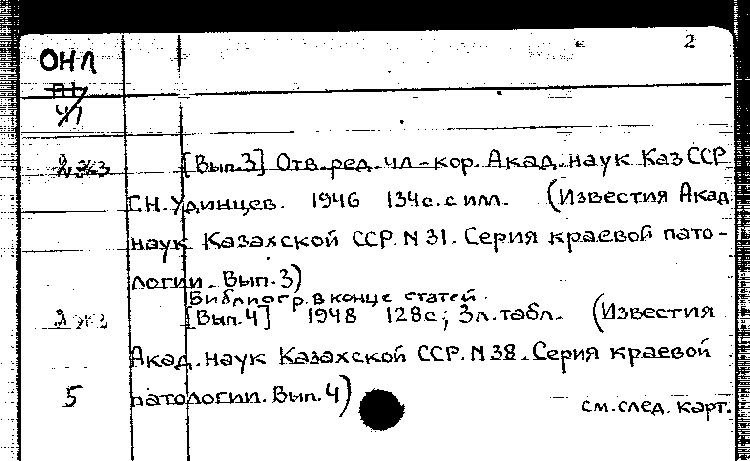 2
ОНЛ
П-1
4/1
2 экз [Вып.3] Отв. ред. чл-кор. Акад. наук Каз ССР
Г.Н. Удинцев. 1946 134с. с илл. (Известия Акад.
наук Казахской ССР. N 31. Серия краевой пато-
логии. Вып. 3)
Библиогр. в конце статей.
2 экз [Вып.4] 1948 128с; 3л. табл. (Известия
Акад. наук Казахской ССР. N 38. Серия краевой
5 патологии. Вып. 4)
см. след. карт.